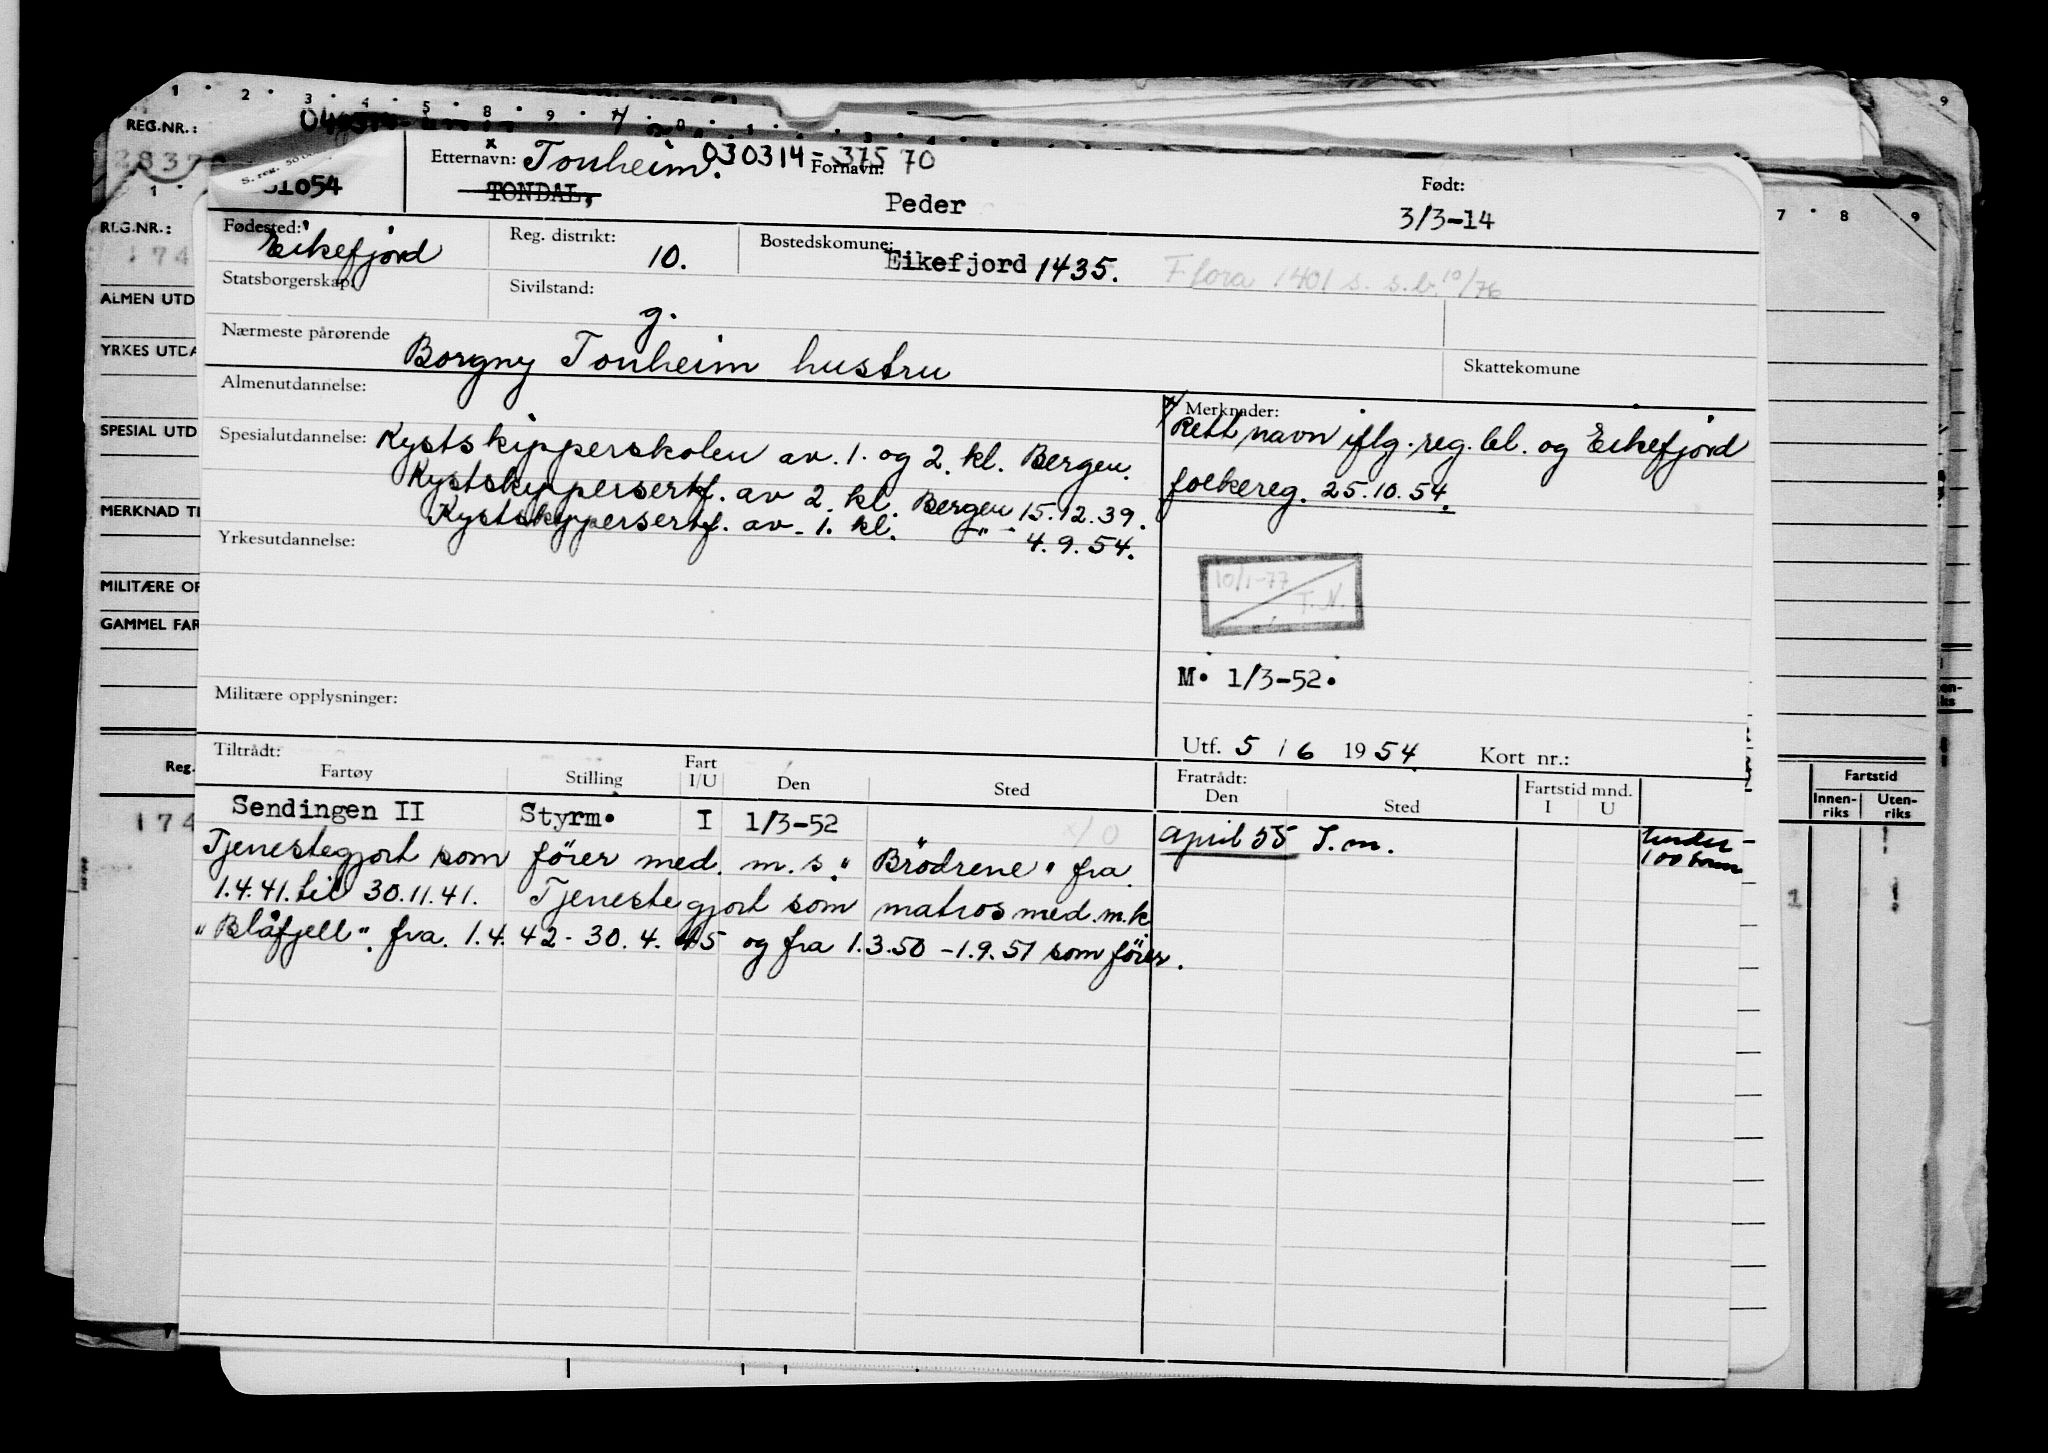 1 · 2 · 3 · 4 · 5 · 8 · 9
REG.NR.:
Etternavn: x Tonheim. 030314-37570
TONDAL,
Fornavn: Peder
Født: 3/3-14
REG.NR.:
7 · 8 · 9
Fødested: Eikefjord
Reg. distrikt: 10.
Bostedskomune: Eikefjord 1435. Flora 1401 s. s.b. 10/76
Statsborgerskap:
Sivilstand: g.
Nærmeste pårørende Borgny Tonheim hustru
Skattekomune
Almenutdannelse:
Spesialutdannelse: Kystskipperskolen av. 1. og 2. kl. Bergen.
Kystskippersertf. av 2. kl. Bergen 15.12.39.
Kystskippersertf. av. 1. kl. -"- 4.9.54.
x Merknader:
Rett navn iflg. reg. bl. og Eikefjord
folkereg. 25.10.54.
10/1-77
T.N.
Yrkesutdannelse:
M. 1/3-52.
Militære opplysninger:
Utf. 5/6 1954 Kort nr.:
ALMEN UTD
YRKES UTDA
SPESIAL UTD
MERKNAD TI
MILITÆRE OP
GAMMEL FAR
Reg.
174
Tiltrådt:
Fartøy Stilling Fart I/U Den Sted
Fratrådt:
Den Sted Fartstid mnd. I U
Fartstid
Innen-riks Uten-riks
Sendingen II Styrm. I 1/3-52 april 55 S.m. Under 100 tonn
Tjenestegjort som förer med. m.s. "Brödrene" fra.
1.4.41. til 30.11.41. Tjenestegjort som matros med. m.k.
"Blåfjell". fra. 1.4.42-30.4.45 og fra 1.3.50-1.9.51 som förer.